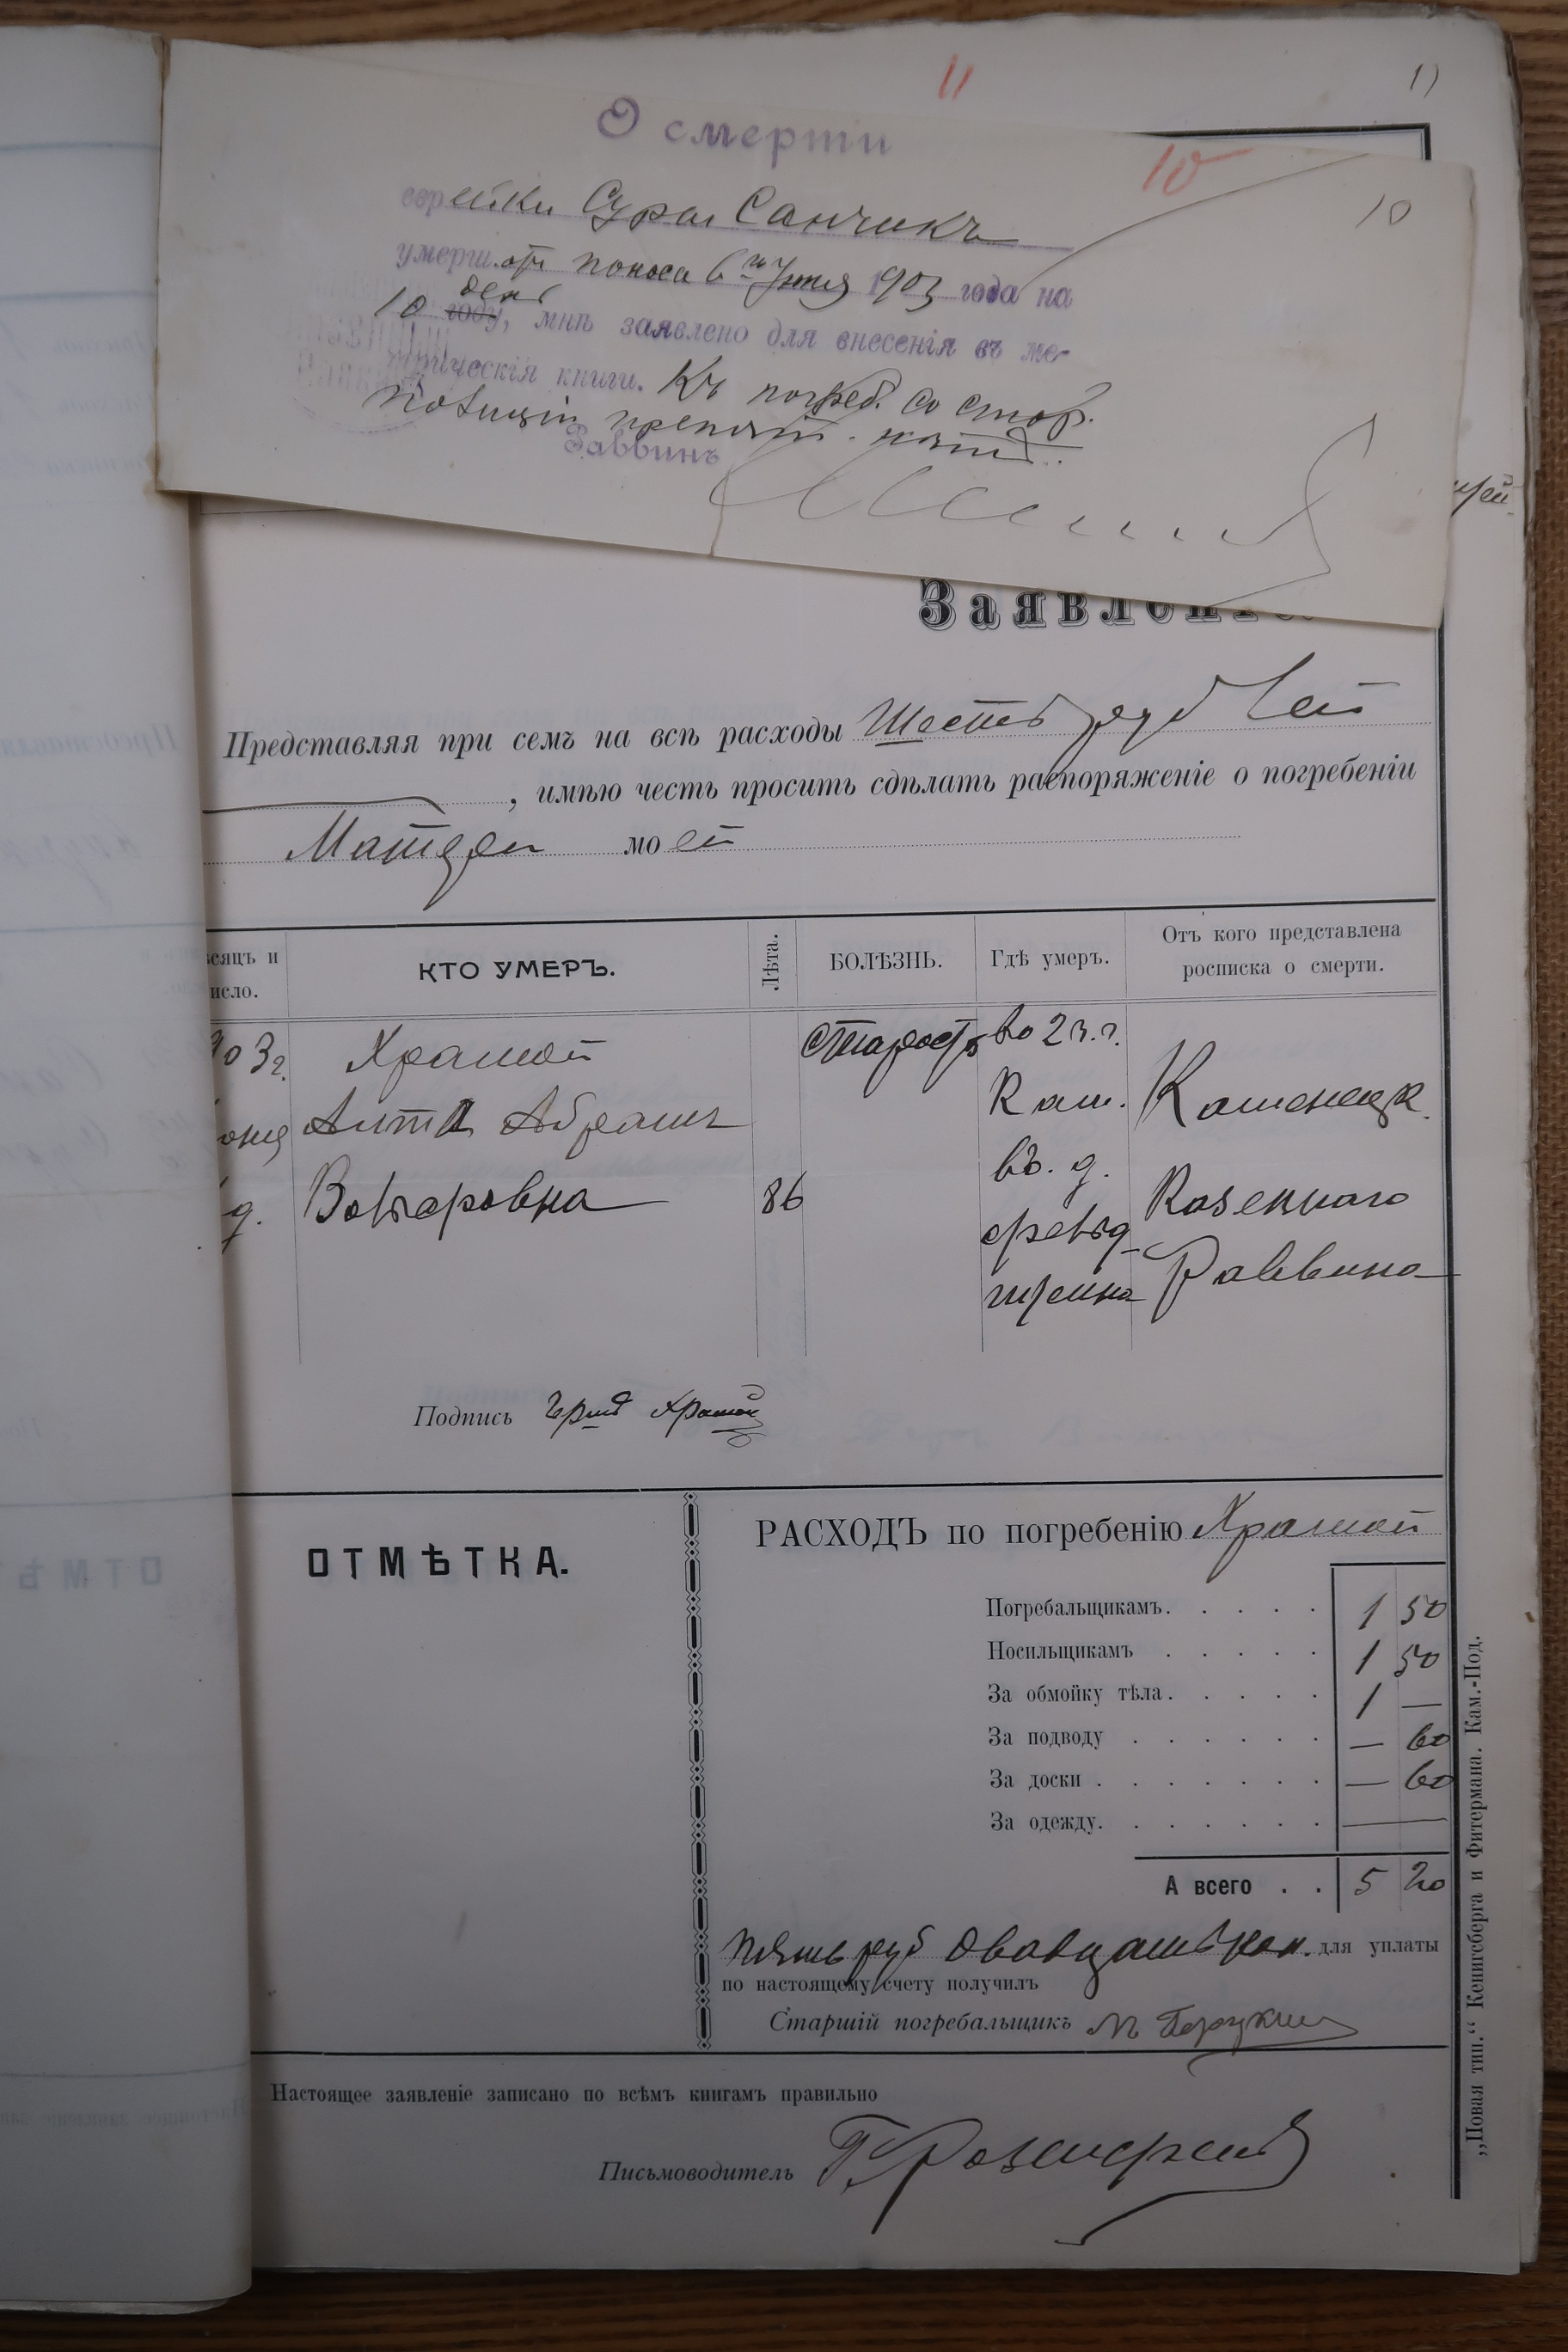 11
11
О смерти
10
10
еврейки Сура Санчикъ
умерш. отъ поноса 6го Іюня 1903 года на
10 день году, мнѣ заявлено для внесенія въ ме-
трическія книги. Къ погреб. со стор.
полиціи препят. нѣтъ.
Раввинъ
Заявленіе
Представляя при семъ на всѣ расходы Шесть рублей
, имѣю честь просить сдѣлать распоряженіе о погребеніи
Матери моей
сяцъ и
исло.
КТО УМЕРЪ.
Лѣта.
БОЛѢЗНЬ.
Гдѣ умеръ.
Отъ кого представлена
росписка о смерти.
903г.
Храмой
старость
во 2 ч. г.
Кам.
Каменецк.
юня
Алта Абрамъ
въ. д.
д.
Вольфовна
86
Казеннаго
Раввина
Подпись Храмой
ОТМѢТКА.
РАСХОДЪ по погребенію Храмой
Погребальщикамъ. 1 50
Носильщикамъ 1 50
За обмойку тѣла. 1 —
За подводу — 60
За доски — 60
За одежду. —
А всего 5 20
пять руб двадцать коп. для уплаты
по настоящему счету получилъ
Старшій погребальщикъ
Настоящее заявленіе записано по всѣмъ книгамъ правильно
Письмоводитель
„Новая тип.“ Кенигсберга и Фитермана. Кам.-Под.